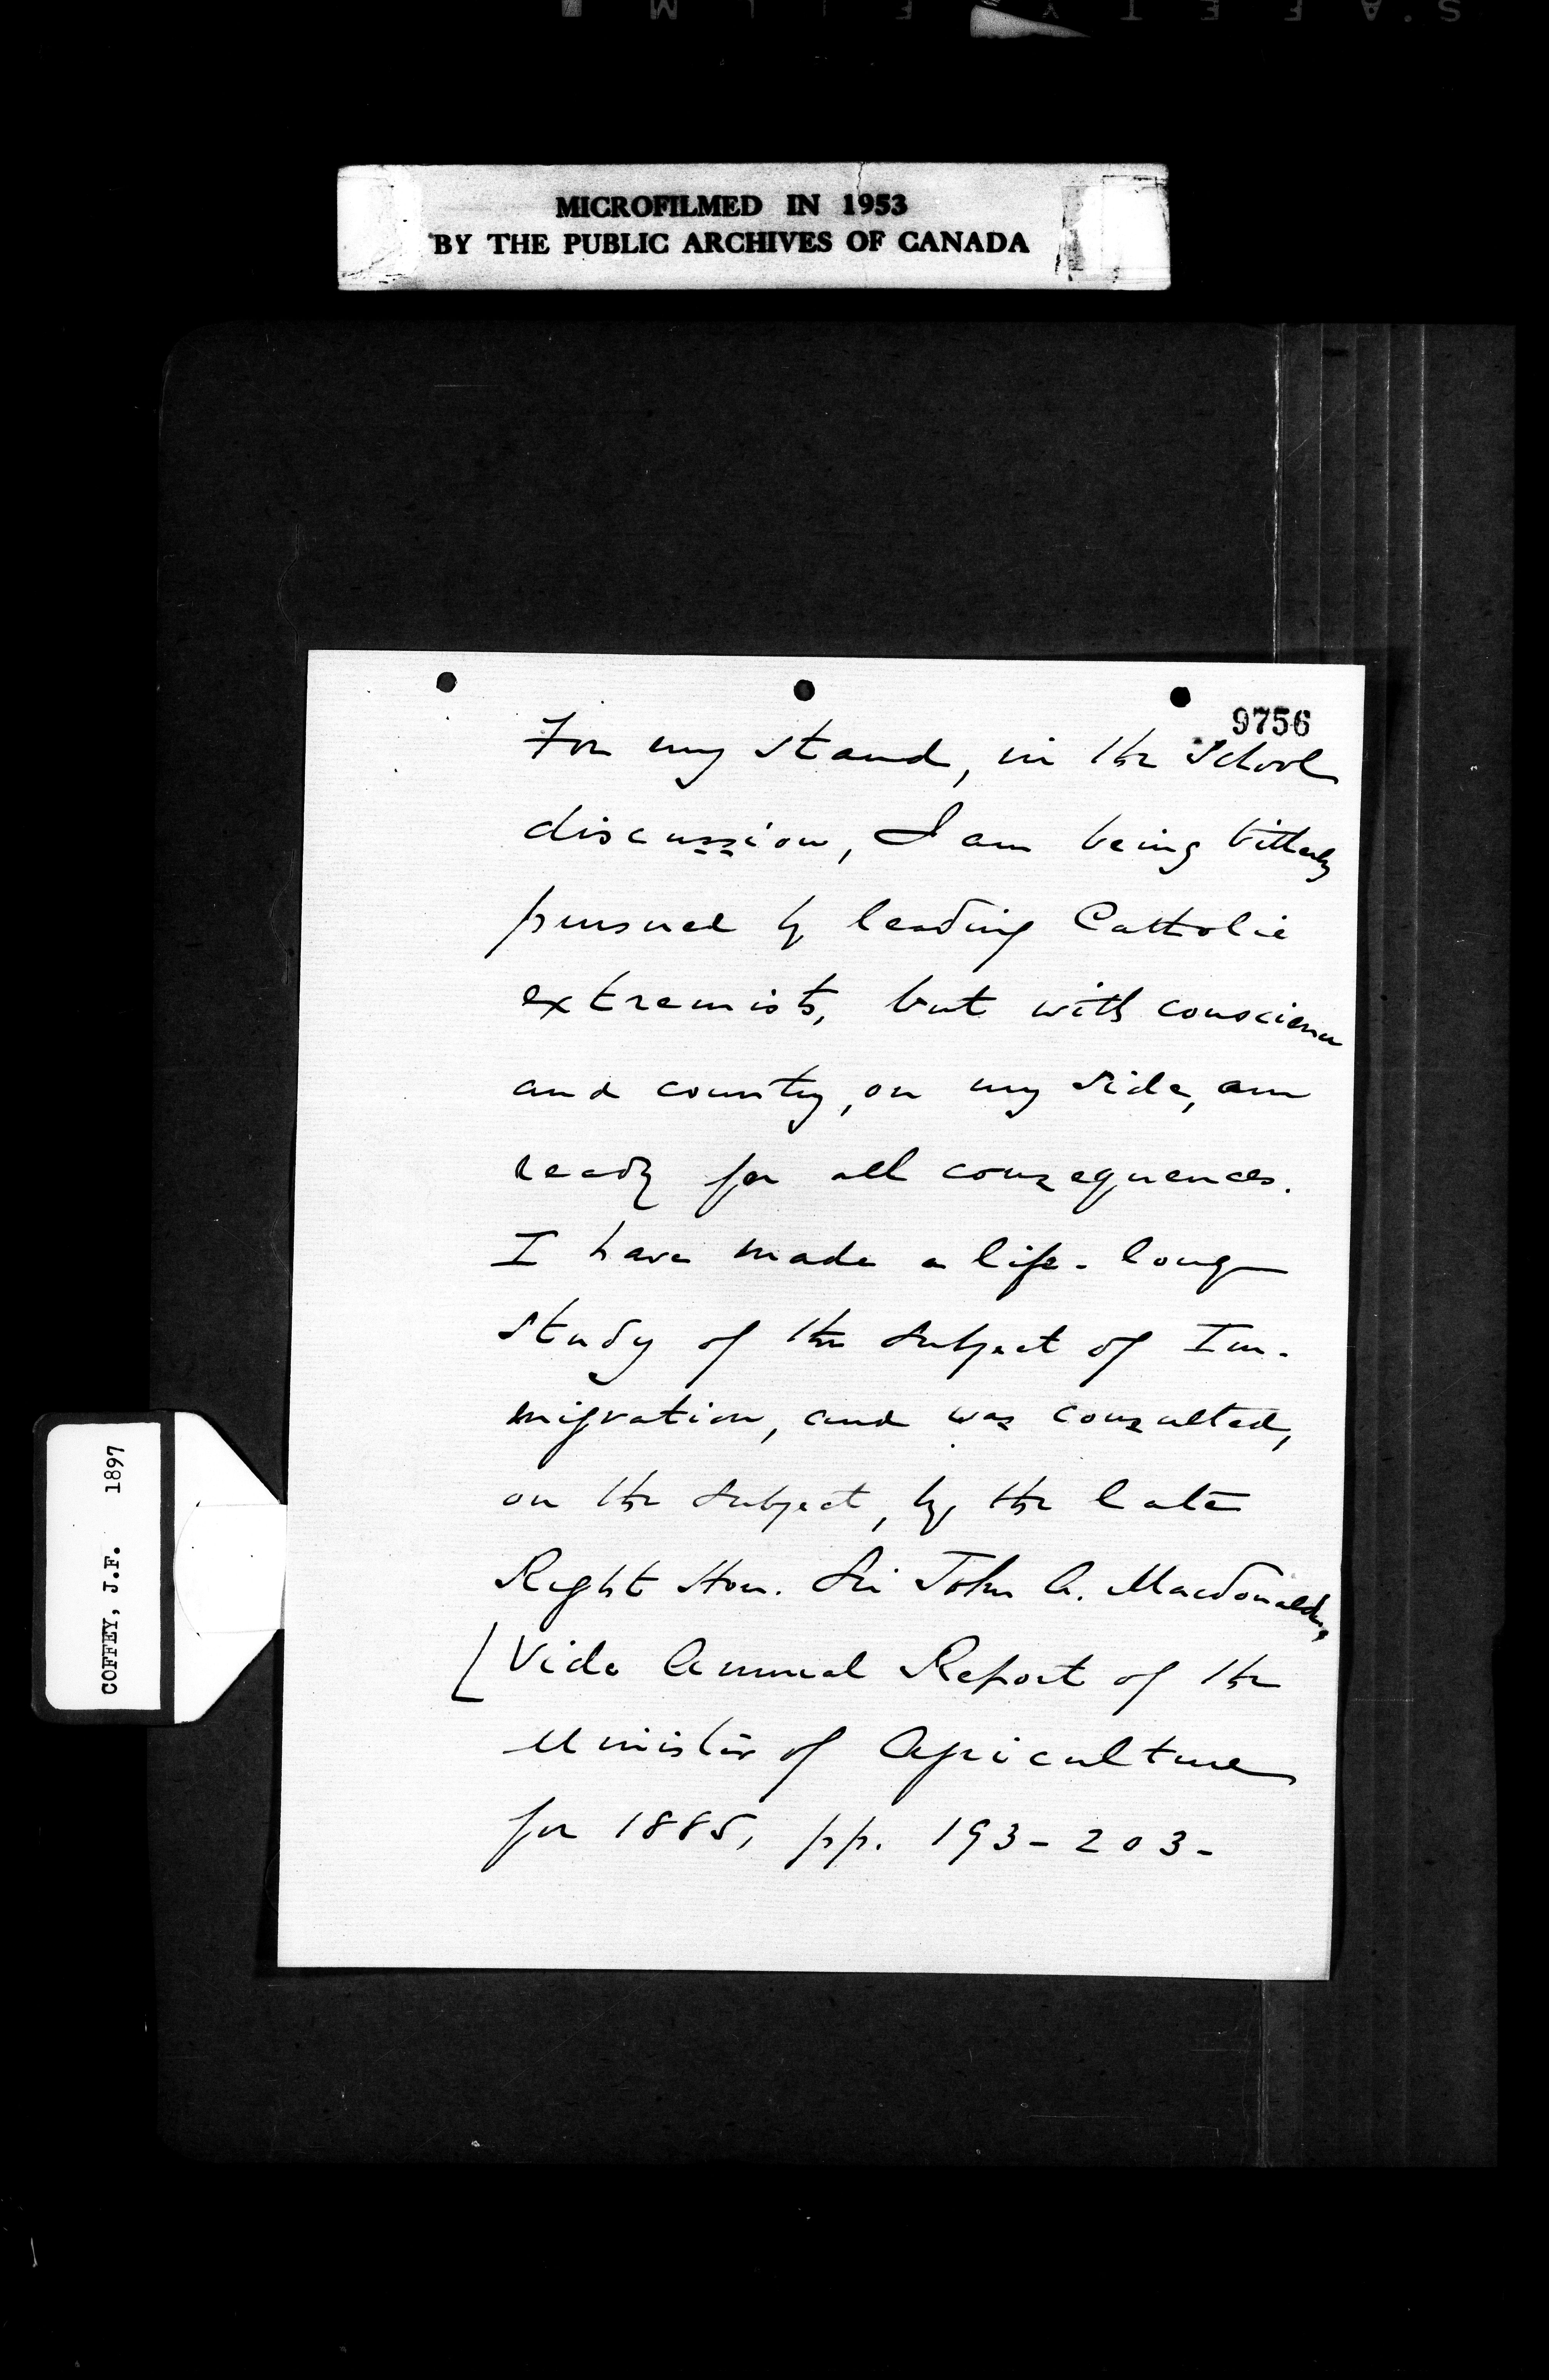 MICROFILMED IN 1953
BY THE PUBLIC ARCHIVES OF CANADA
9756
For my stand, in the School
discussion, I am being bitterly
pursued by leading Catholic
extremists, but with conscience
and country, on my side, am
ready for all consequences.
I have made a life-long
study of the subject of Im-
migration, and was consulted,
on the subject, by the late
Right Hon. Sir John A. Macdonald,
[Vide Annual Report of the
Minister of Agriculture
for 1885, pp. 193-203-
COFFEY, J.F. 1897